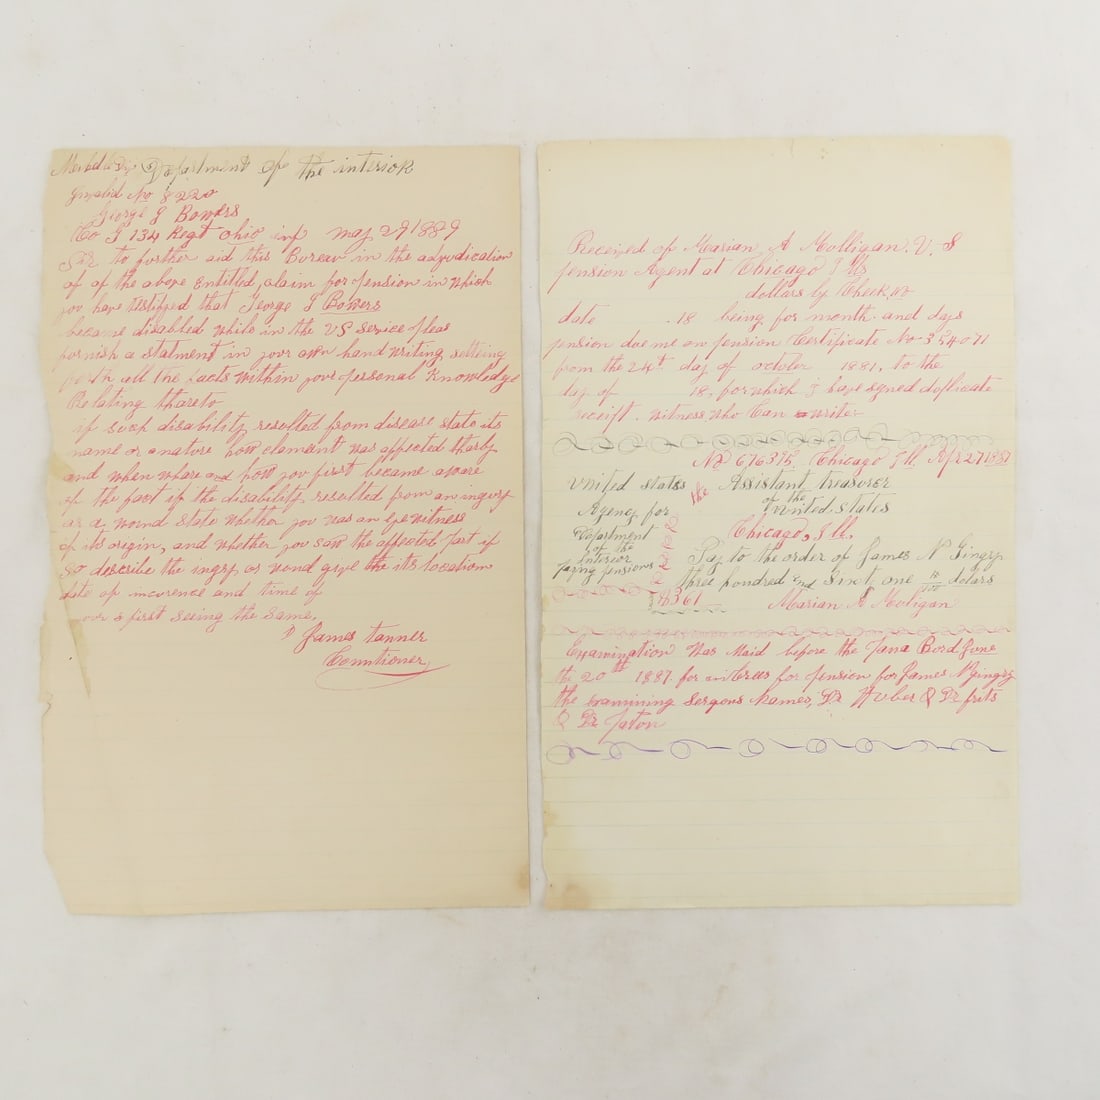 Department of the interior
Invalid No 8220
George J Bowers
Co G 134 Regt Ohio inf may 29 1889
Sir to further aid this Bureau in the adjudication
of of the above Entitled, claim for pension in which
you have testifyed that George J Bowers
became disabled while in the US service pleas
furnish a statment in your own hand writing setteing
forth all the facts within your personal Knowledge
Relating thareto
if such disability resulted from disease state its
name or a nature how clemant was affected tharby
and when whare and how you first became aware
of the fact if the disability resulted from an ingury
as a wond state whether you was an eye witness
of its origin, and whether you saw the affected part if
so describe the ingry or wond give the its location
date of incurence and time of
your s first seeing the same.
James tanner
Comtioner
Received of Marian A Mulligan. U. S
pension Agent at Chicago Ills
dollars by Check, no
date 18 being for month and days
pension due me on pension Certificate No 354071
from the 24th day of october 1881, to the
day of 18, for which I have signed duplicate
receift. witness who Can write
No 676375 Chicago Ill. Apr 27 1887
United States the Assistant treasurer
Agency for of the United States
Department Chicago, Ill.
of the Interior Pay to the order of James N Gingry
paying pensions three hondred and Sixty one dolars
$361 Marian A Muligan
Examination Was Maid before the Bord June
the 20th 1887 for an increes for pension for James N gingry
the examining Sergons Names, Dr Huber & Dr frits
& Dr Jaton